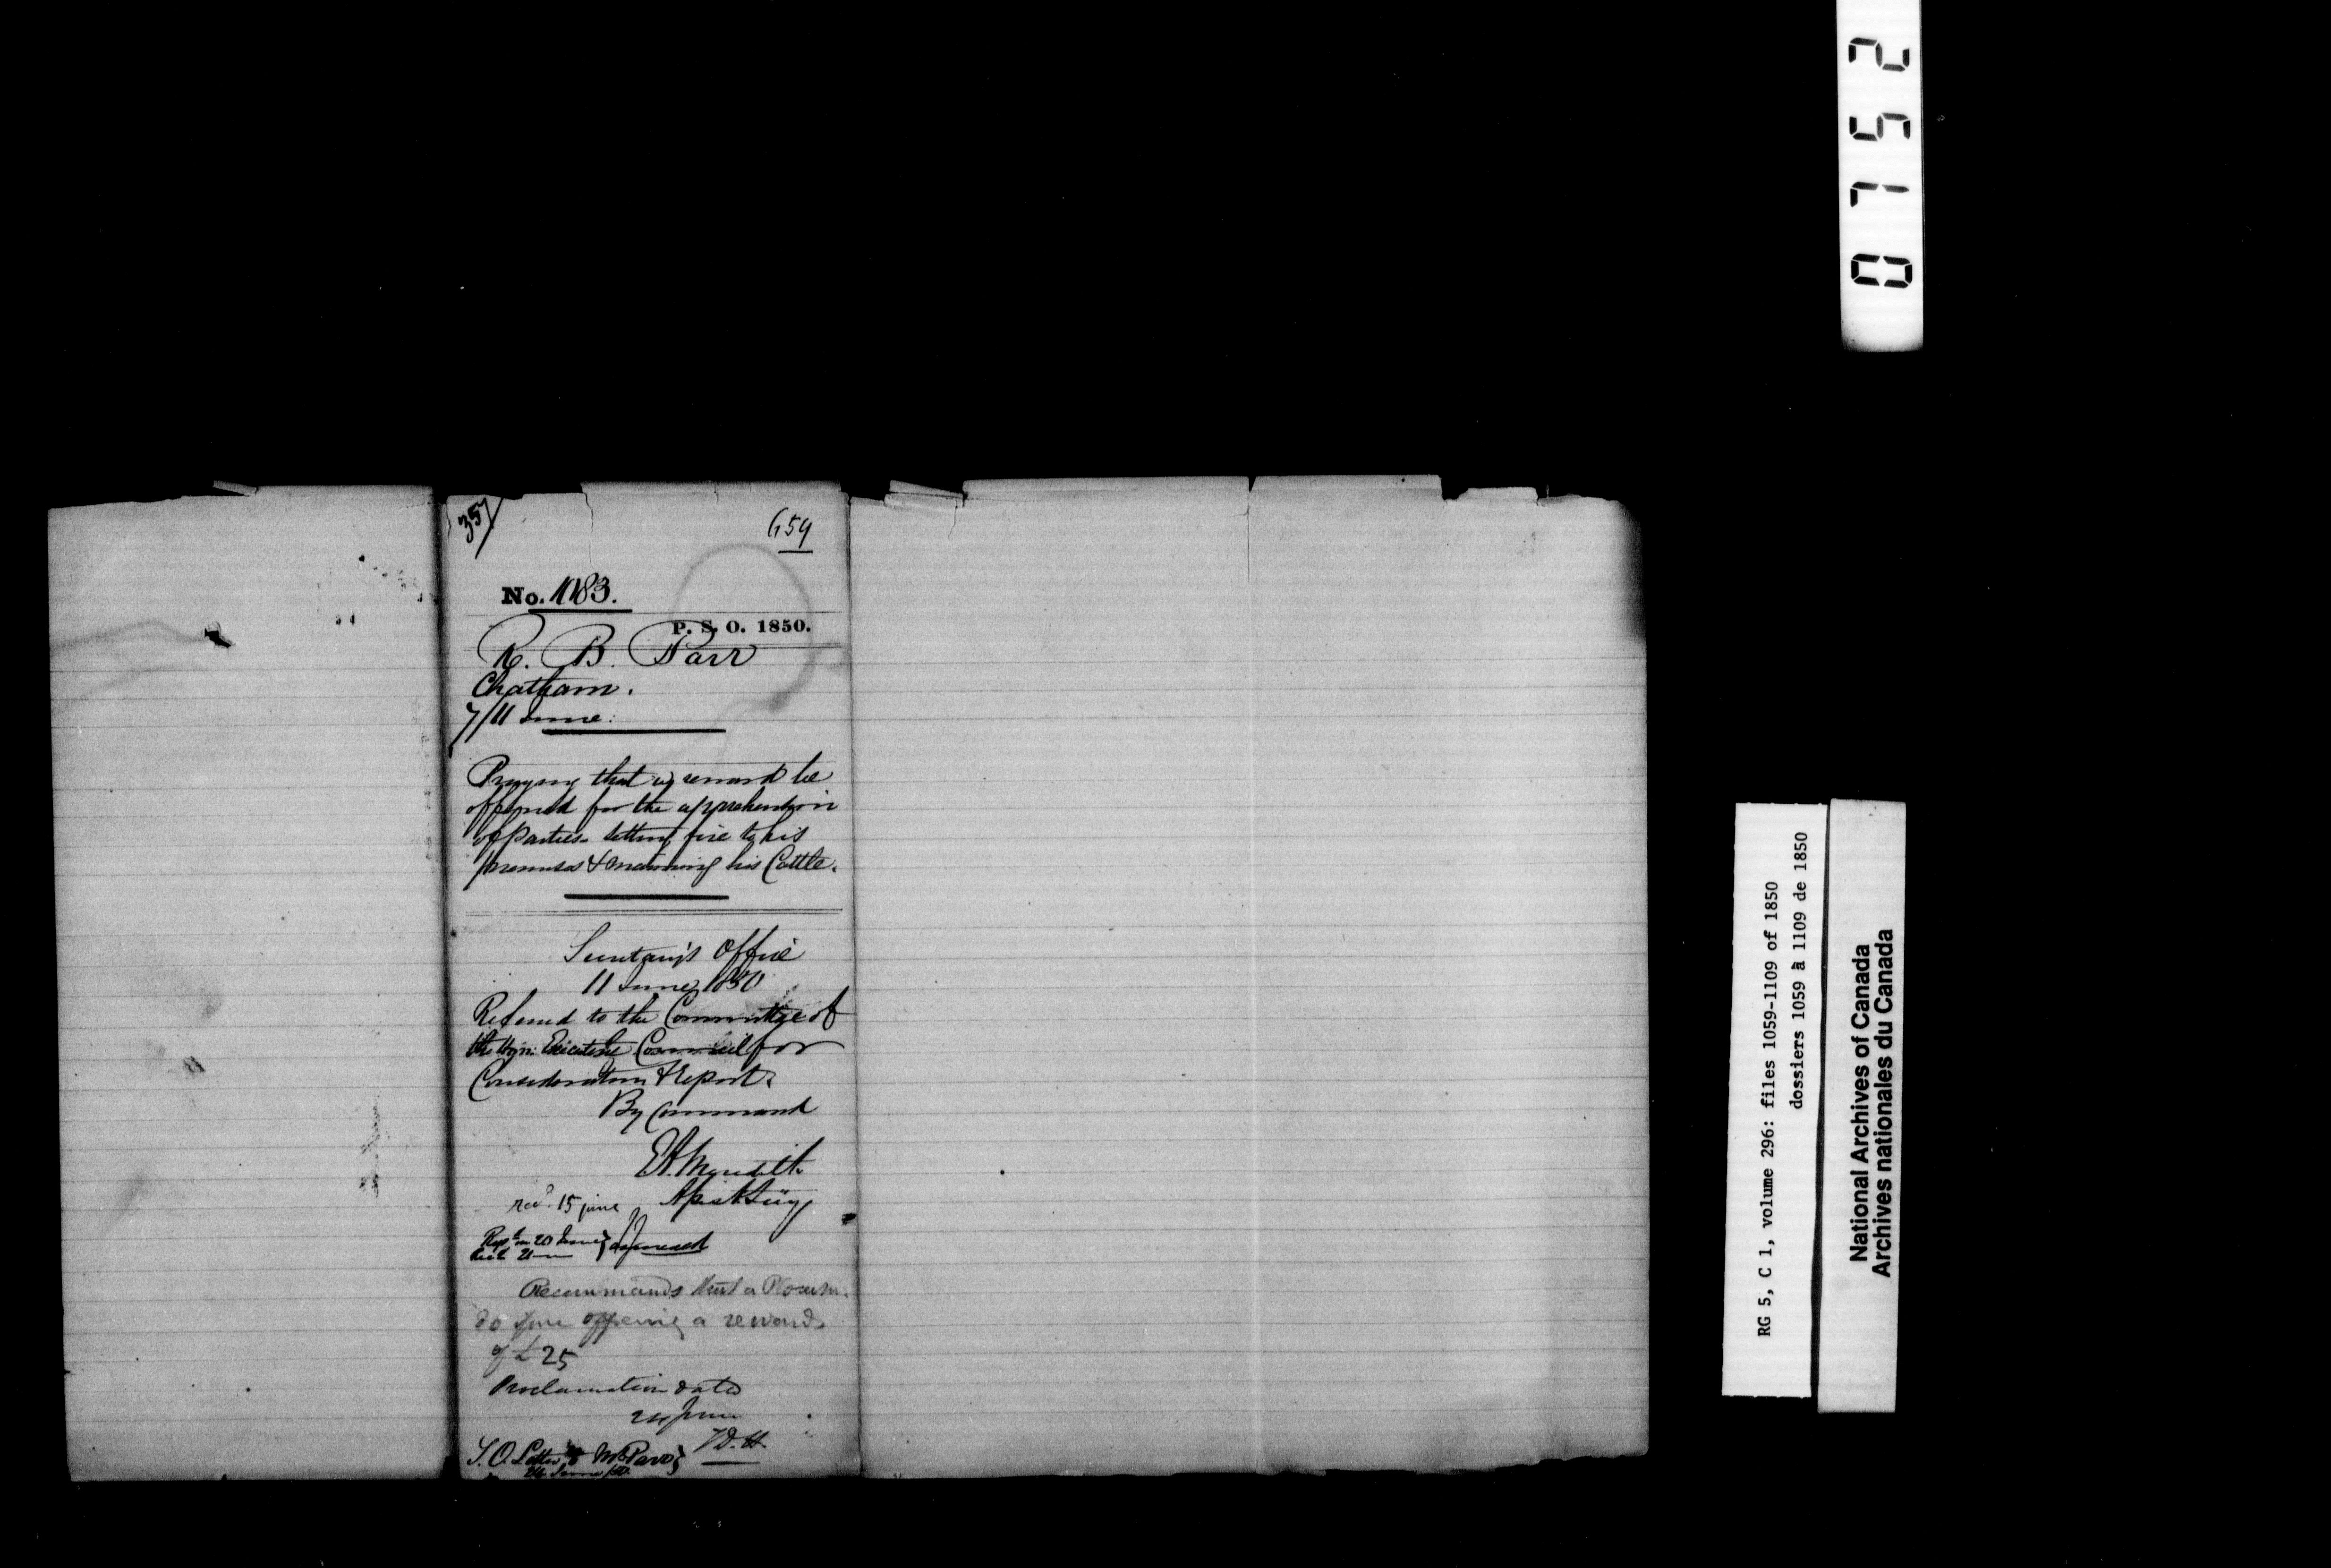 357
659
No. 1083.
P. S. O. 1850.
R. B. Parr
Chatham.
7/11 June.
Praying that a reward be
offered for the apprehension
of Parties setting fire to his
premises & maiming his Cattle.
Secretary's Office
11 June 1850
Referred to the Committee of
the Hon: Executive Council for
Consideration & Report.
By Command
E. A. Meredith
Asst Secy
recd. 15 june
Rept on 20 June
Recd 21 — approved
Recommends that a Proclam.
do issue offering a reward
of £25
Proclamation dated
24 June
S. O. Letter to Mr Parr
24 June /50
0752
RG 5, C 1, volume 296: files 1059-1109 of 1850
dossiers 1059 à 1109 de 1850
National Archives of Canada
Archives nationales du Canada